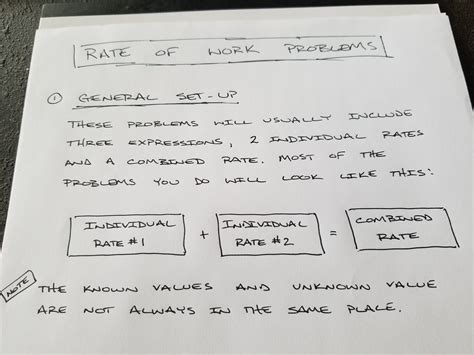 RATE OF WORK PROBLEMS
① GENERAL SET-UP
THESE PROBLEMS WILL USUALLY INCLUDE
THREE EXPRESSIONS, 2 INDIVIDUAL RATES
AND A COMBINED RATE. MOST OF THE
PROBLEMS YOU DO WILL LOOK LIKE THIS:
INDIVIDUAL RATE #1 + INDIVIDUAL RATE #2 = COMBINED RATE
NOTE THE KNOWN VALUES AND UNKNOWN VALUE
ARE NOT ALWAYS IN THE SAME PLACE.